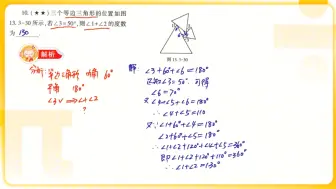 10.(★★)三个等边三角形的位置如图
13.3-30所示,若∠3=50°,则∠1+∠2的度数
为 130
解析
分析: 等边三角形 内角 60°
平角 180°
∠3✓ ⇒ ∠1+∠2
?
图 13.3-30
解: ∠3+60°+∠6=180°
∠3=50° 可得
∠6=70°
又∠4+∠5+∠6=180°
∴∠4+∠5=110
又∵∠1+60°+∠4=180°
∠2+60°+∠5=180°
∴∠1+∠2+120°+∠4+∠5=360°
即∠1+∠2+120°+110°=360°
∴∠1+∠2=130°